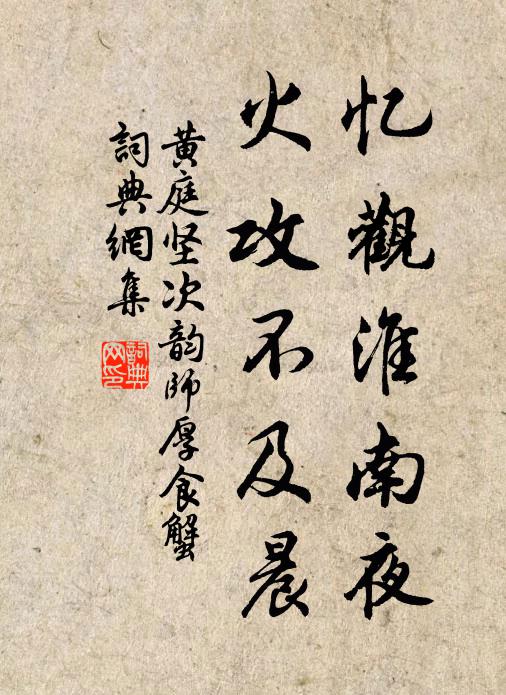 忆觀淮南夜
火攻不及晨
黄庭坚次韵師厚食蟹
詞典網集
詞典网印